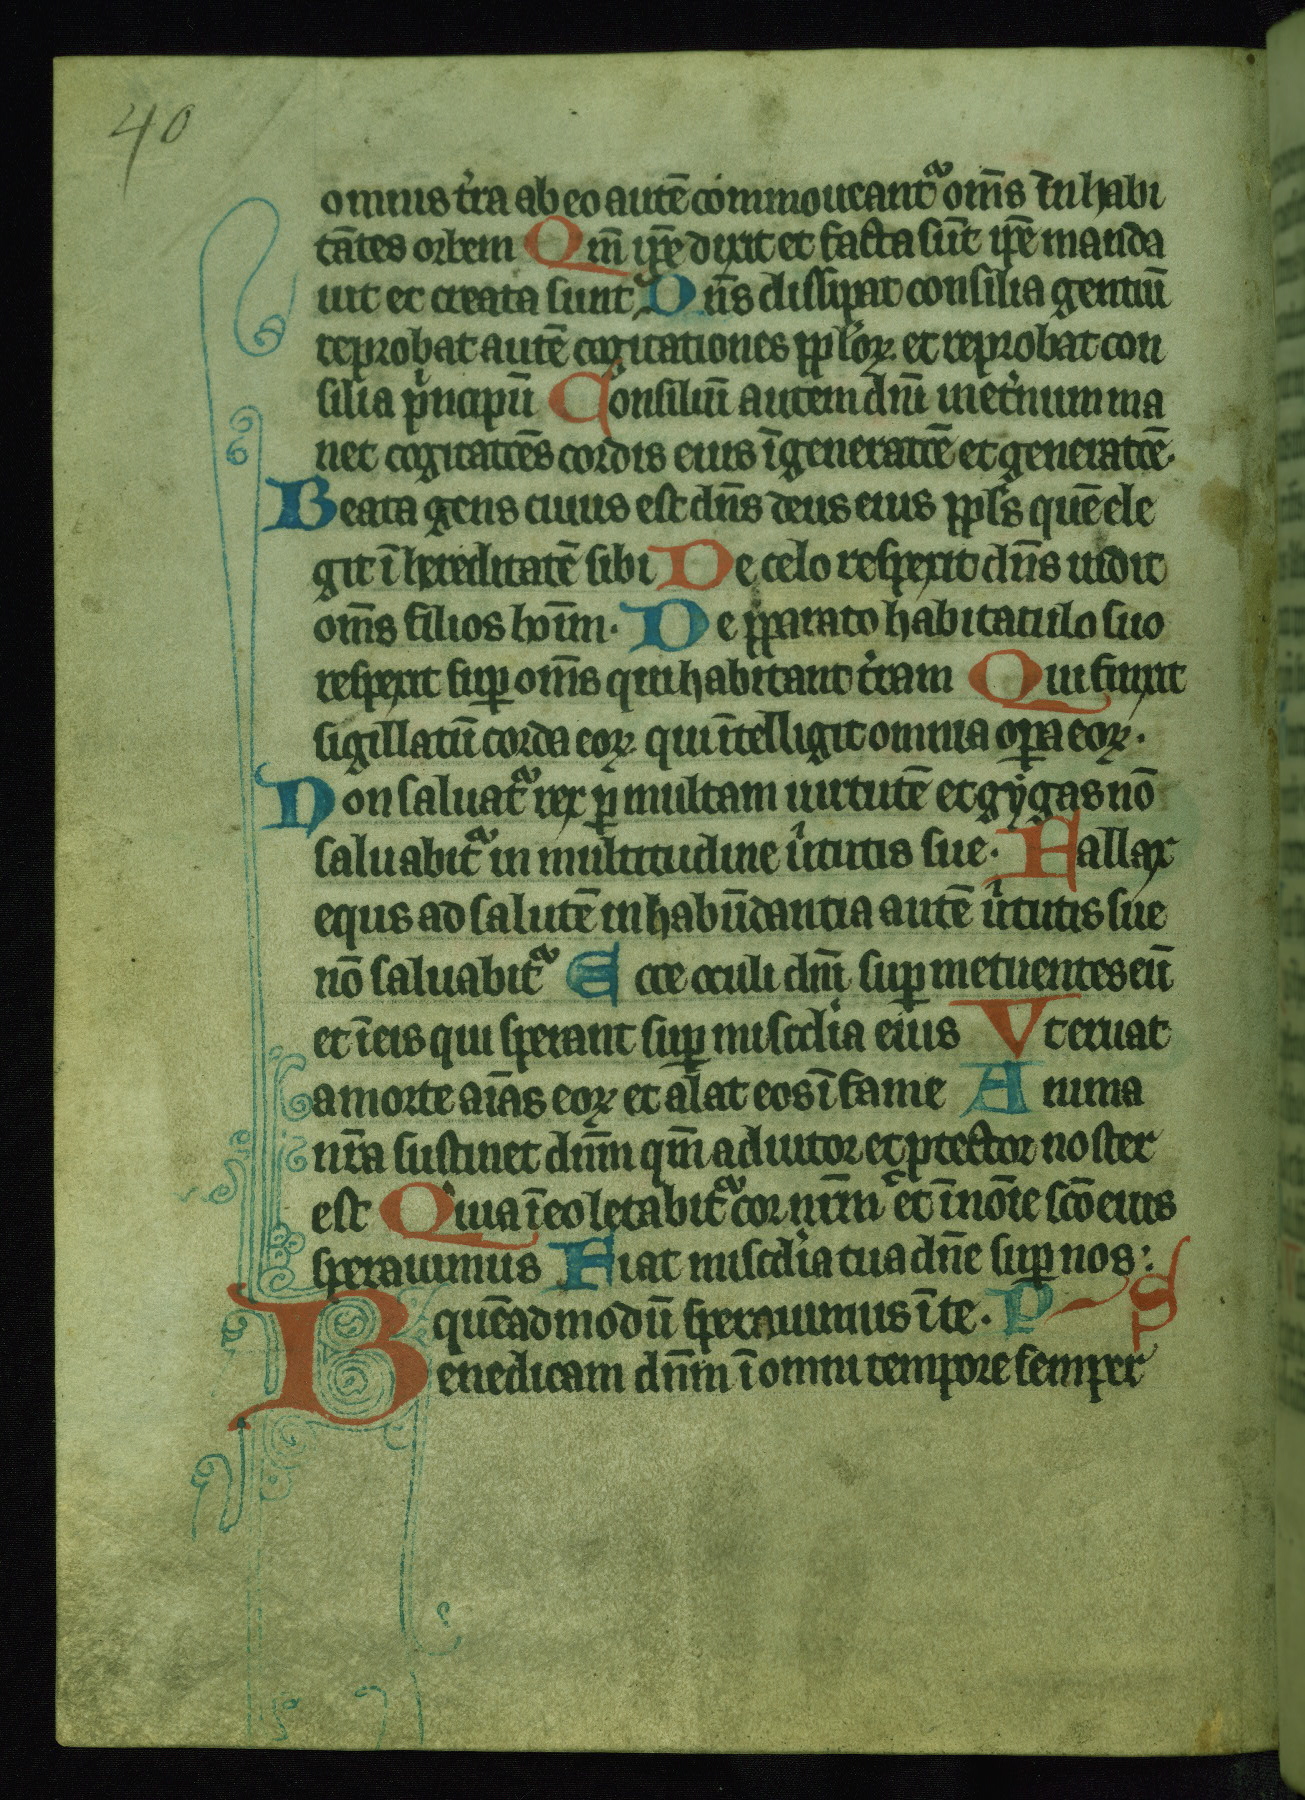 40
omnis t̓ra ab eo autē commoueant᷑ om̄s inhabi
tātes orbem Qm̄ ip̄e dixit et facta sūt ip̄e manda
uit et creata sunt Dn̄s dissipat consilia gentiū
reprobat autē cogitationes ppl̓oꝝ et reprobat con
silia p̓ncipū Consiliū autem dn̄i inet̓num ma
net cogitatōēs cordis eius ī generatōē et generatōē
Beata gens cuius est dn̄s deus eius ppl̓s quē ele
git ī hereditatē sibi De celo respexit dn̄s uidit
om̄s filios hoīm · De pparato habitaculo suo
respexit suꝑ om̄s qui habitant t̓ram Qui finxit
sigillatū corda eoꝝ qui ītelligit omnia oꝑa eoꝝ ·
Non saluat᷑ rex ꝑ multam uirtutē et gygas nō
saluabit᷑ in multitudine u̓tutis sue · Fallax
equs ad salutē in habūdantia autē u̓tutis sue
nō saluabit᷑ Ecce oculi dn̄i suꝑ metuentes eū
et ī eis qui sperant suꝑ miscd̓ia eius Vt eruat
a morte aīas eoꝝ et alat eos ī fame Anima
nr̄a sustinet dn̄m qm̄ adiutor et ꝓtector noster
est Quia ī eo letabit᷑ cor nr̄m et ī nōīe scō eius
sperauimus Fiat miscd̓ia tua dn̄e suꝑ nos :
quēadmodū sperauimus ī te · P S
Benedicam dn̄m ī omni tempore semper